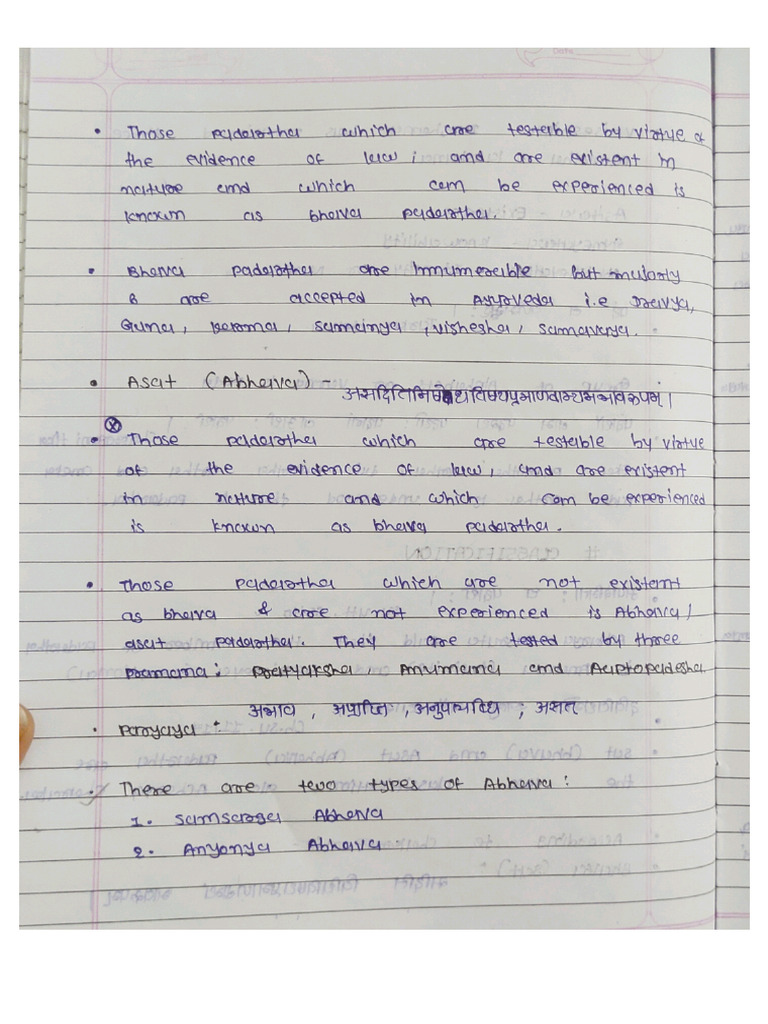 • Those padartha which are testable by virtue of
the evidence of law; and are existent in
nature and which can be experienced is
known as bhava padartha.
• Bhava padartha are innumerable but mularly
6 are accepted in Ayurveda i.e Dravya,
Guna, karma, samanya, vishesha, samavaya.
• Asat (Abhava) -
• Those padartha which are testable by virtue
of the evidence of law, and are existent
in nature and which can be experienced
is known as bhava padartha.
• Those padartha which are not existent
as bhava & are not experienced is Abhava/
asat padartha. They are tested by three
pramana: Pratyaksha Anumana and Aaptopadesha.
• paryaya : अभाव, अप्राप्ति, असत्
• There are two types of Abhava:
1. Samsarga Abhava
2. Anyonya Abhava
# CLASSIFICATION